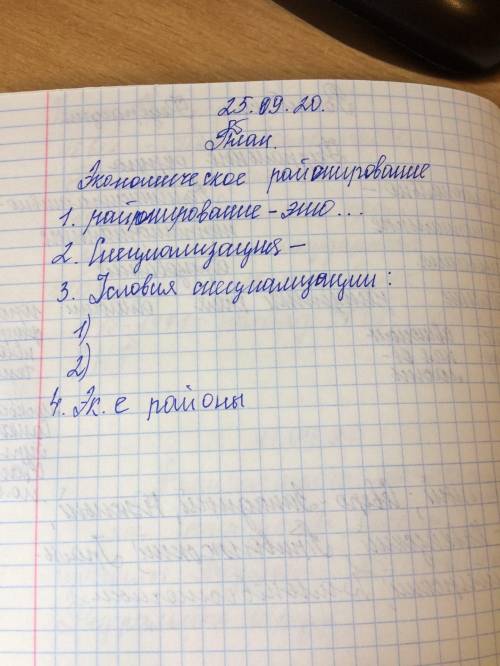 25.09.20.
План.
Экономическое районирование
1. районирование - это...
2. Специализация -
3. Условия специализации:
1)
2)
4. Эк. е районы